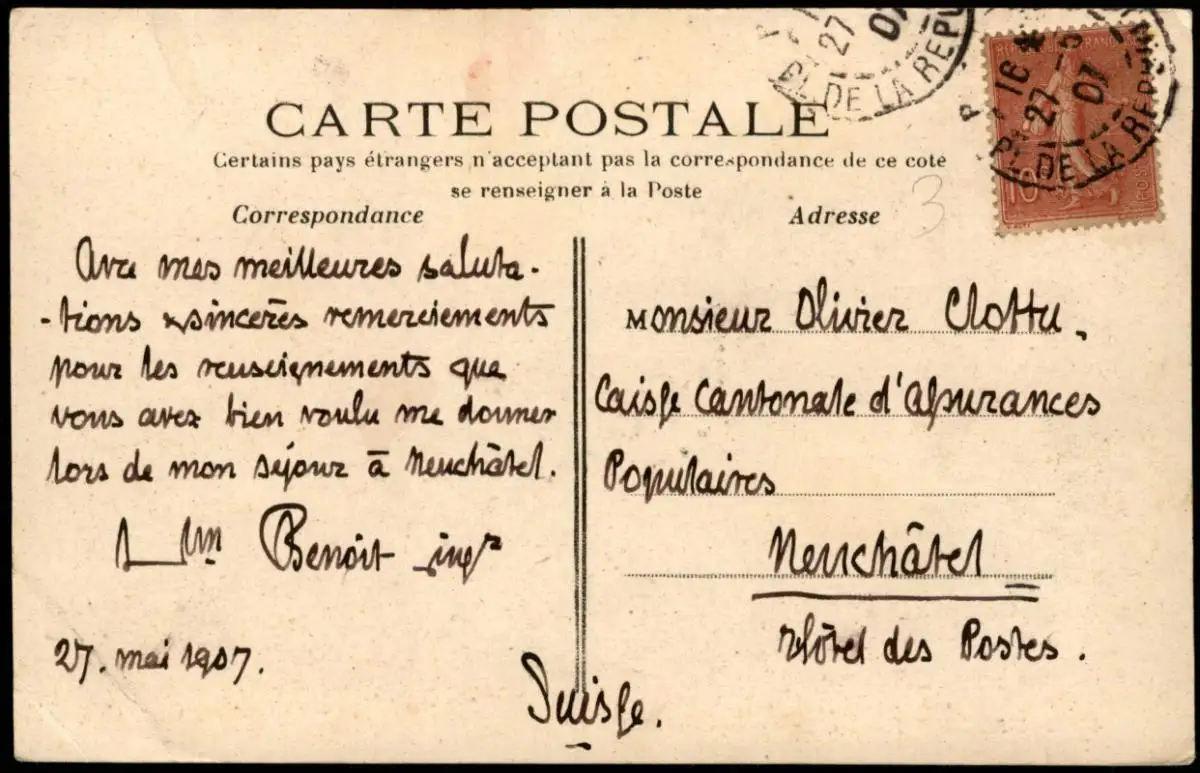 CARTE POSTALE
Certains pays étrangers n'acceptant pas la correspondance de ce coté
se renseigner à la Poste
Correspondance
Adresse
3
Avec mes meilleures saluta-
-tions & sincères remerciements
pour les renseignements que
vous avez bien voulu me donner
lors de mon séjour à Neuchâtel.
Benoit ingr
27. mai 1907.
Monsieur Olivier Clottu,
Caisse Cantonale d'Assurances
Populaires
Neuchâtel
Hôtel des Postes.
Suisse.
27
07
PL. DE LA REPU
16
27 -5
07
PL. DE LA REPU
10
POSTES